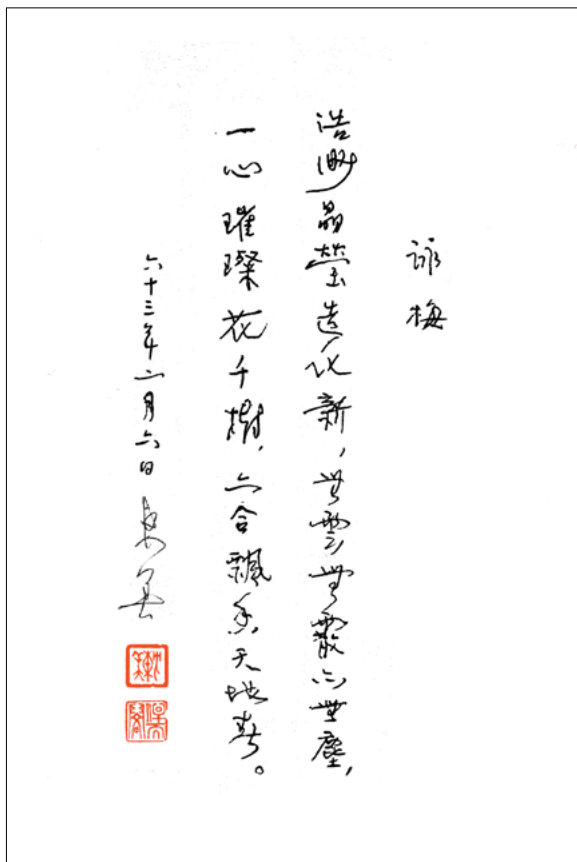 詠梅
浩渺晶瑩造化新，無雲無霧亦無塵，
一心璀璨花千樹，六合飄香天地春。
六十三年二月六日